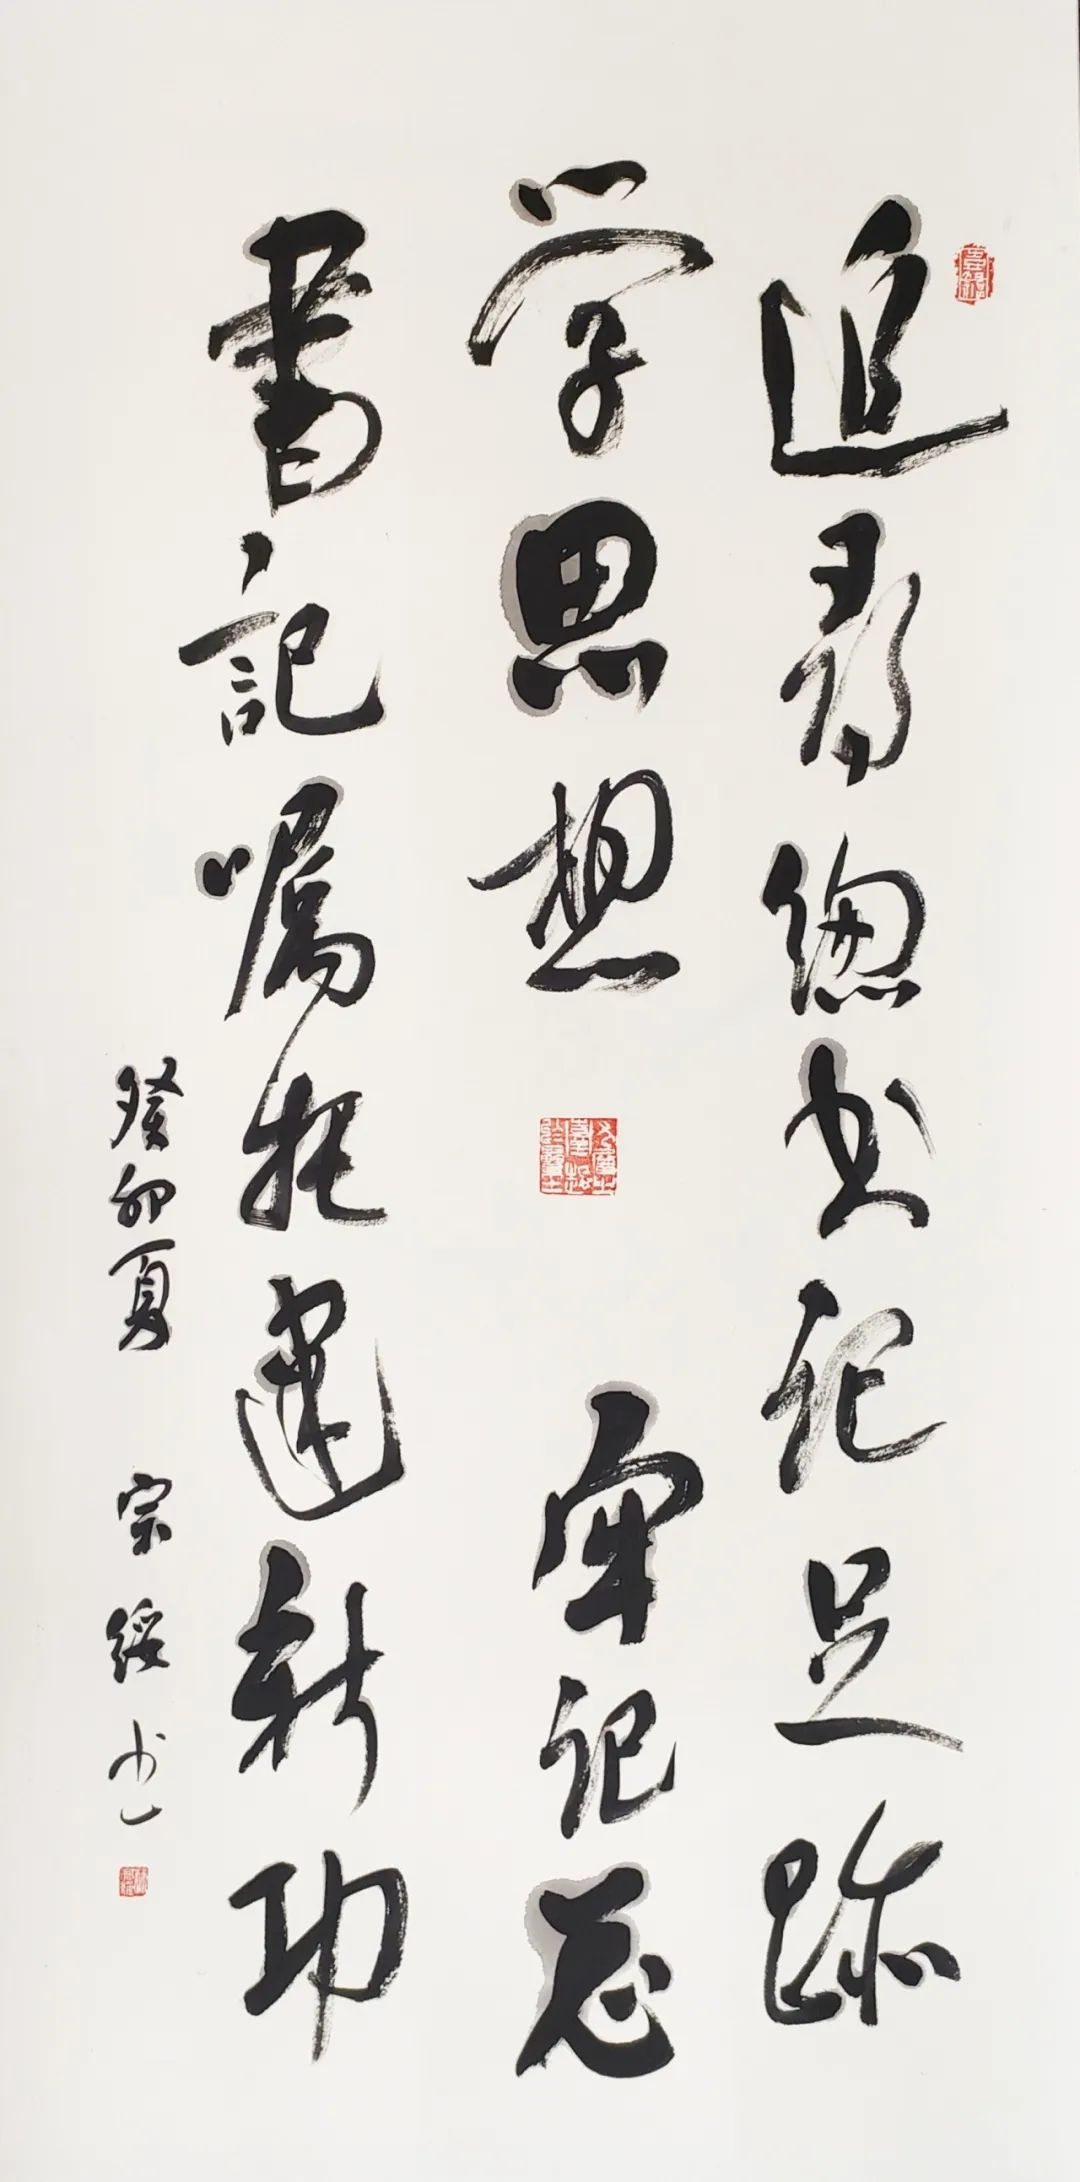 追寻總书记足跡
学思想 牢记总
書記嘱托建新功
癸卯夏 宗绥书